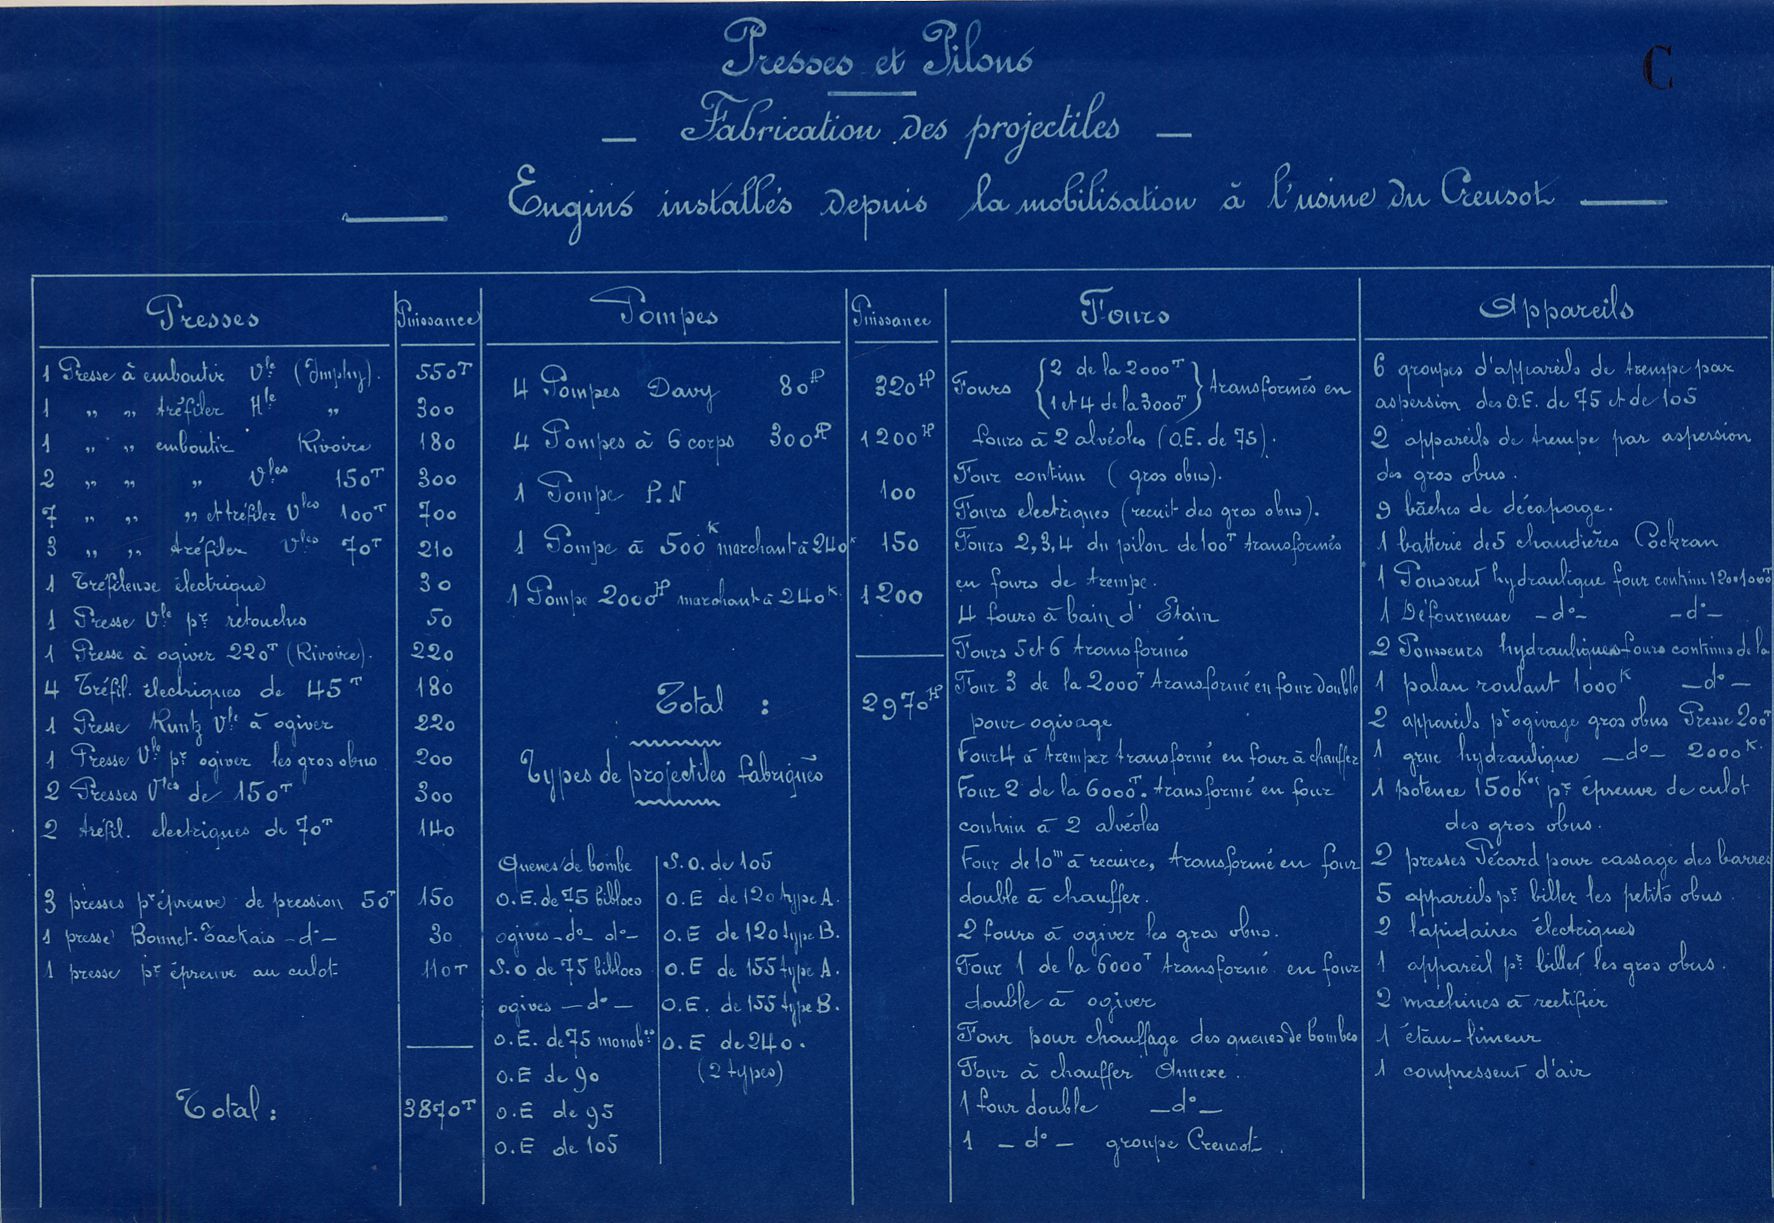 Presses et Pilons
C
— Fabrication des projectiles —
— Engins installés depuis la mobilisation à l'usine du Creusot —
Presses
Puissance
1 Presse à emboutir Vle (Imphy). 550T
1 „ „ tréfiler Hle „ 300
1 „ „ emboutir Rivoire 180
2 „ „ „ Vles 150T 300
7 „ „ „ et tréfiler Vles 100T 700
3 „ „ tréfiler Vles 70T 210
1 Tréfileuse électrique 30
1 Presse Vle pr retouches 50
1 Presse à ogiver 220T (Rivoire). 220
4 Tréfil. électriques de 45T 180
1 Presse Kuntz Vle à ogiver 220
1 Presse Vle pr ogiver les gros obus 200
2 Presses Vles de 150T 300
2 tréfil. electriques de 70T 140
3 presses pr épreuve de pression 50T 150
1 presse Bonnet-Tackais -do- 30
1 presse pr épreuve au culot 110T
Total : 3870T
Pompes
Puissance
4 Pompes Davy 80HP 320HP
4 Pompes à 6 corps 300HP 1200HP
1 Pompe P.N 100
1 Pompe à 500K marchant à 240K 150
1 Pompe 2000HP marchant à 240K. 1200
Total : 2970HP
Types de projectiles fabriqués
Queues de bombe
O.E. de 75 bibloco
ogives -do- do-
S.O de 75 bibloco
ogives -do-
O.E. de 75 monob..
O.E de 90
O.E de 95
O.E de 105
S.O. de 105
O.E de 120 type A.
O.E de 120 type B.
O.E de 155 type A.
O.E. de 155 type B.
O.E de 240.
(2 types)
Fours
Fours { 2 de la 2000T
1 et 4 de la 3000T } transformés en
fours à 2 alvéoles (O.E. de 75).
Four continu (gros obus).
Fours electriques (recuit des gros obus).
Fours 2, 3, 4 du pilon de 100T transformés
en fours de trempe.
4 fours à bain d'Etain
Fours 5 et 6 transformés
Four 3 de la 2000T transformé en four double
pour ogivage
Four 4 à tremper transformé en four à chauffer
Four 2 de la 6000T. transformé en four
continu à 2 alvéoles
Four de 10m à recuire, transformé en four
double à chauffer.
2 fours à ogiver les gros obus.
Four 1 de la 6000T transformé en four
double à ogiver
Four pour chauffage des queues de bombes
Four à chauffer Annexe.
1 four double -do-
1 -do- groupe Creusot.
Appareils
6 groupes d'appareils de trempe par
aspersion des O.E. de 75 et de 105
2 appareils de trempe par aspersion
des gros obus.
9 bâches de décapage.
1 batterie de 5 chaudières Cockran
1 Pousseur hydraulique four continu 1200 1000T
1 Défourneuse -do- -do-
2 Pousseurs hydrauliques fours continus de la
1 palan roulant 1000K -do-
2 appareils pr ogivage gros obus Presse 200T
1 grue hydraulique -do- 2000K.
1 potence 1500Kos pr épreuve de culot
des gros obus.
2 presses Pécard pour cassage des barres
5 appareils pr biller les petits obus.
2 lapidaires électriques
1 appareil pr biller les gros obus.
2 machines à rectifier
1 étau-limeur
1 compresseur d'air